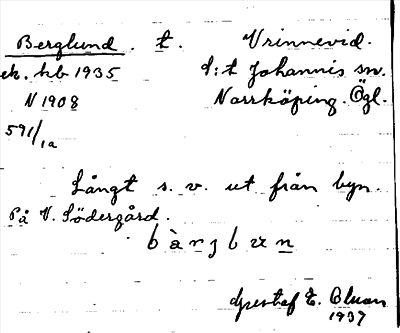 Berglund. t. Vrinnevid.
ek. kb 1935 d:t Johannis sn.
N 1908 Norrköping. Ögl.
591/1a
Långt s. v. ut från byn.
På V. Södergård.
Gustaf E. Bluan
1937